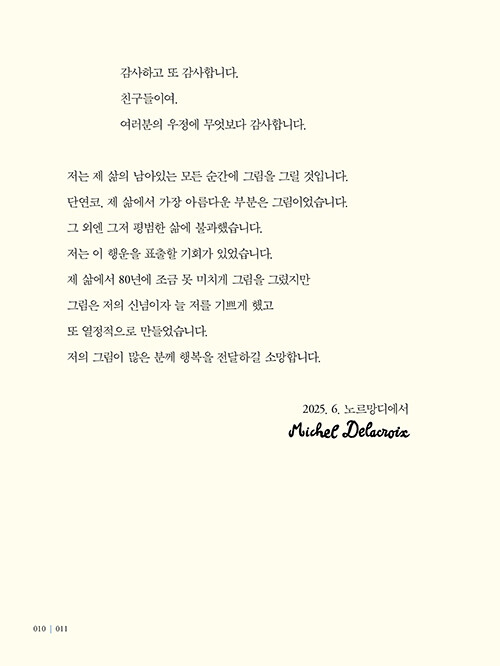 감사하고 또 감사합니다.
친구들이여.
여러분의 우정에 무엇보다 감사합니다.
저는 제 삶의 남아있는 모든 순간에 그림을 그릴 것입니다.
단연코, 제 삶에서 가장 아름다운 부분은 그림이었습니다.
그 외엔 그저 평범한 삶에 불과했습니다.
저는 이 행운을 표출할 기회가 있었습니다.
제 삶에서 80년에 조금 못 미치게 그림을 그렸지만
그림은 저의 신념이자 늘 저를 기쁘게 했고
또 열정적으로 만들었습니다.
저의 그림이 많은 분께 행복을 전달하길 소망합니다.
2025. 6. 노르망디에서
Michel Delacroix
010 | 011